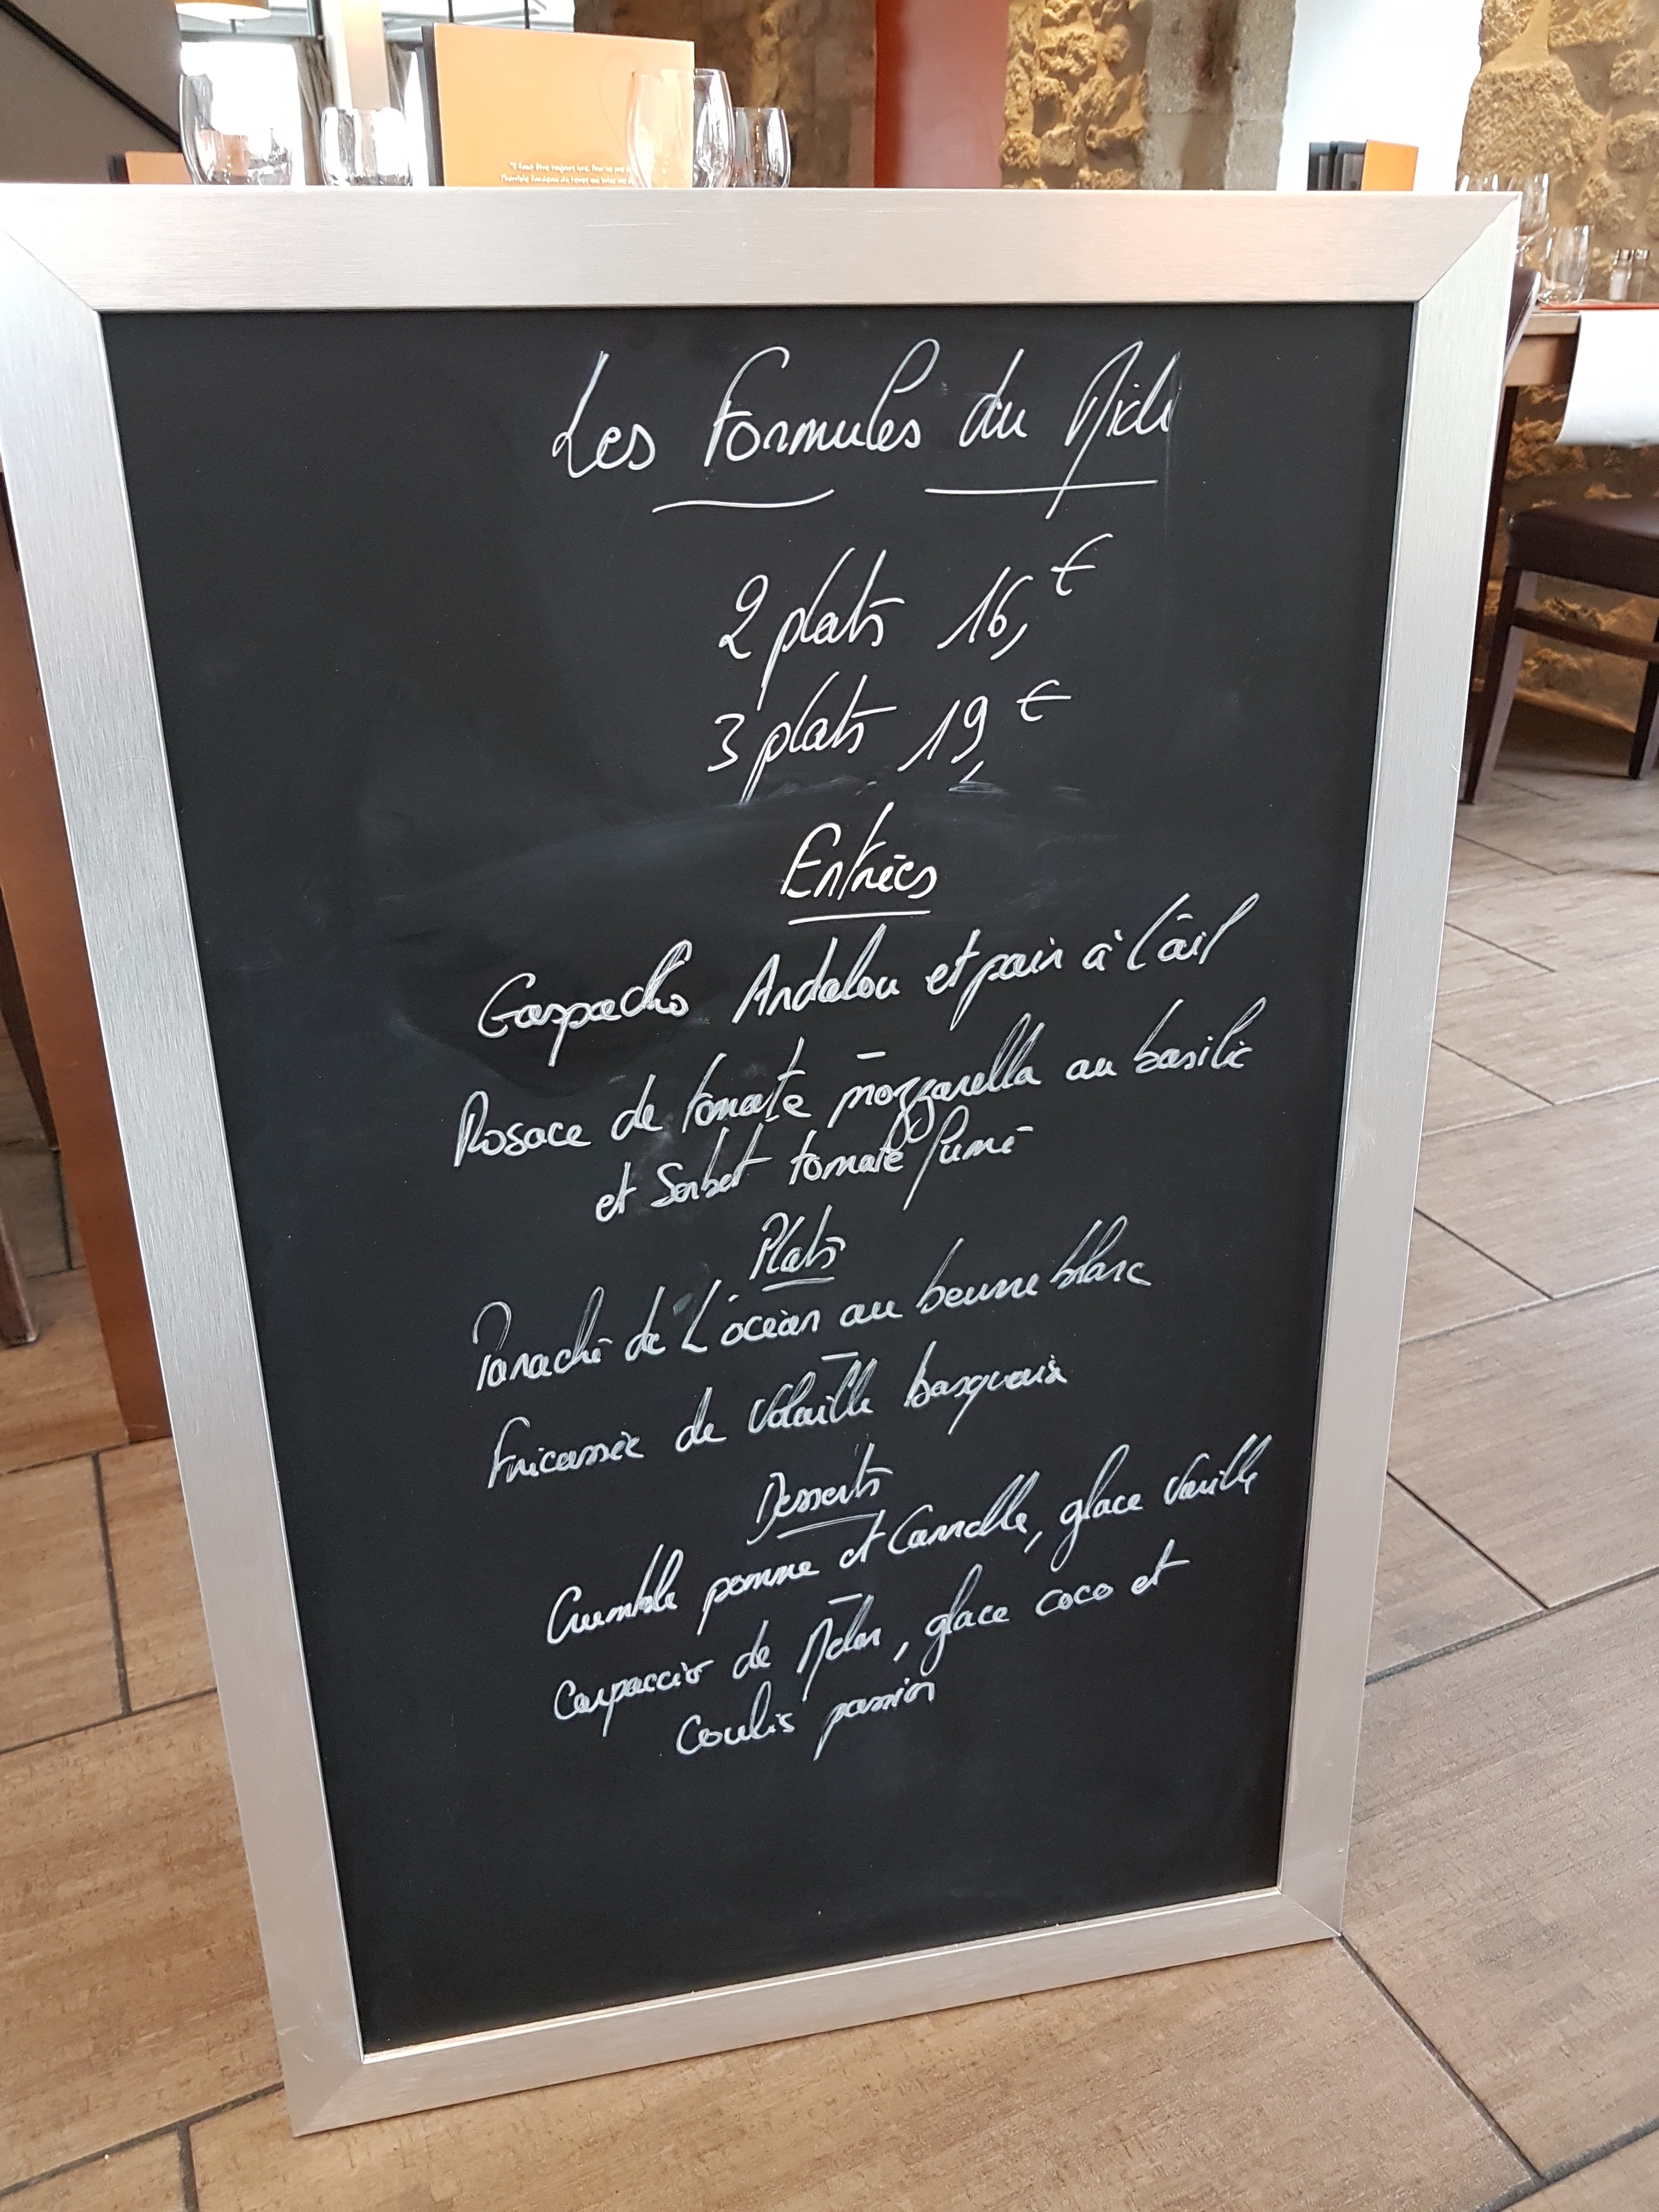 "Il faut être toujours ivre, pour ne pas
l'horrible fardeau du temps qui brise vos
Les Formules du Midi
2 plats 16,€
3 plats 19,€
Entrées
Gaspacho Andalou et pain à l'ail
Rosace de tomate mozzarella au basilic
et Sorbet tomate fumé
Plats
Panaché de L'océan au beurre blanc
Fricassée de Volaille basquaise
Desserts
Crumble pomme et Cannelle, glace Vanille
Carpaccio de Melon, glace coco et
Coulis passion